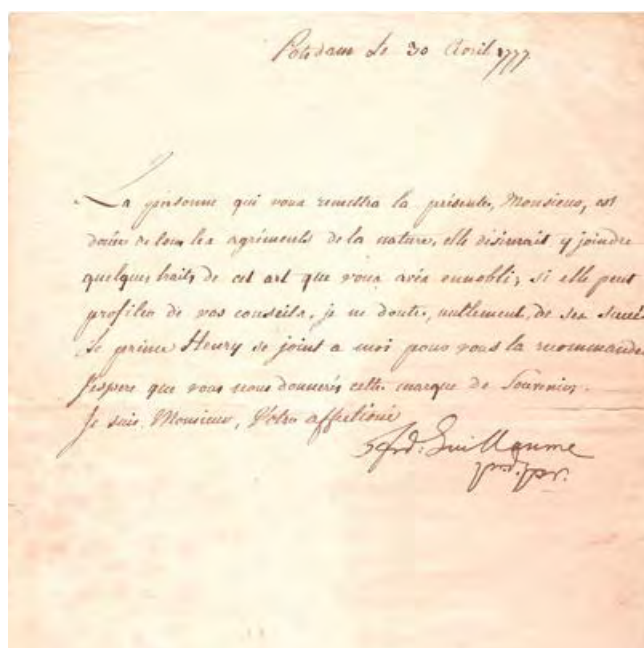 Potsdam Le 30 Avril 1777.
La personne qui vous remettra la présente, Monsieur, est
douée de tous les agréments de la nature, elle désirerait y joindre
quelques traits de cet art que vous avés ennobli; si elle peut
profiter de vos conseils, je ne doute, nullement, de ses succès
Le prince Henry se joint a moi pour vous la recommander
J'espere que vous nous donnerés cette marque de Souvenir.
Je suis Monsieur, Votre affectioné
Fréd: Guillaume